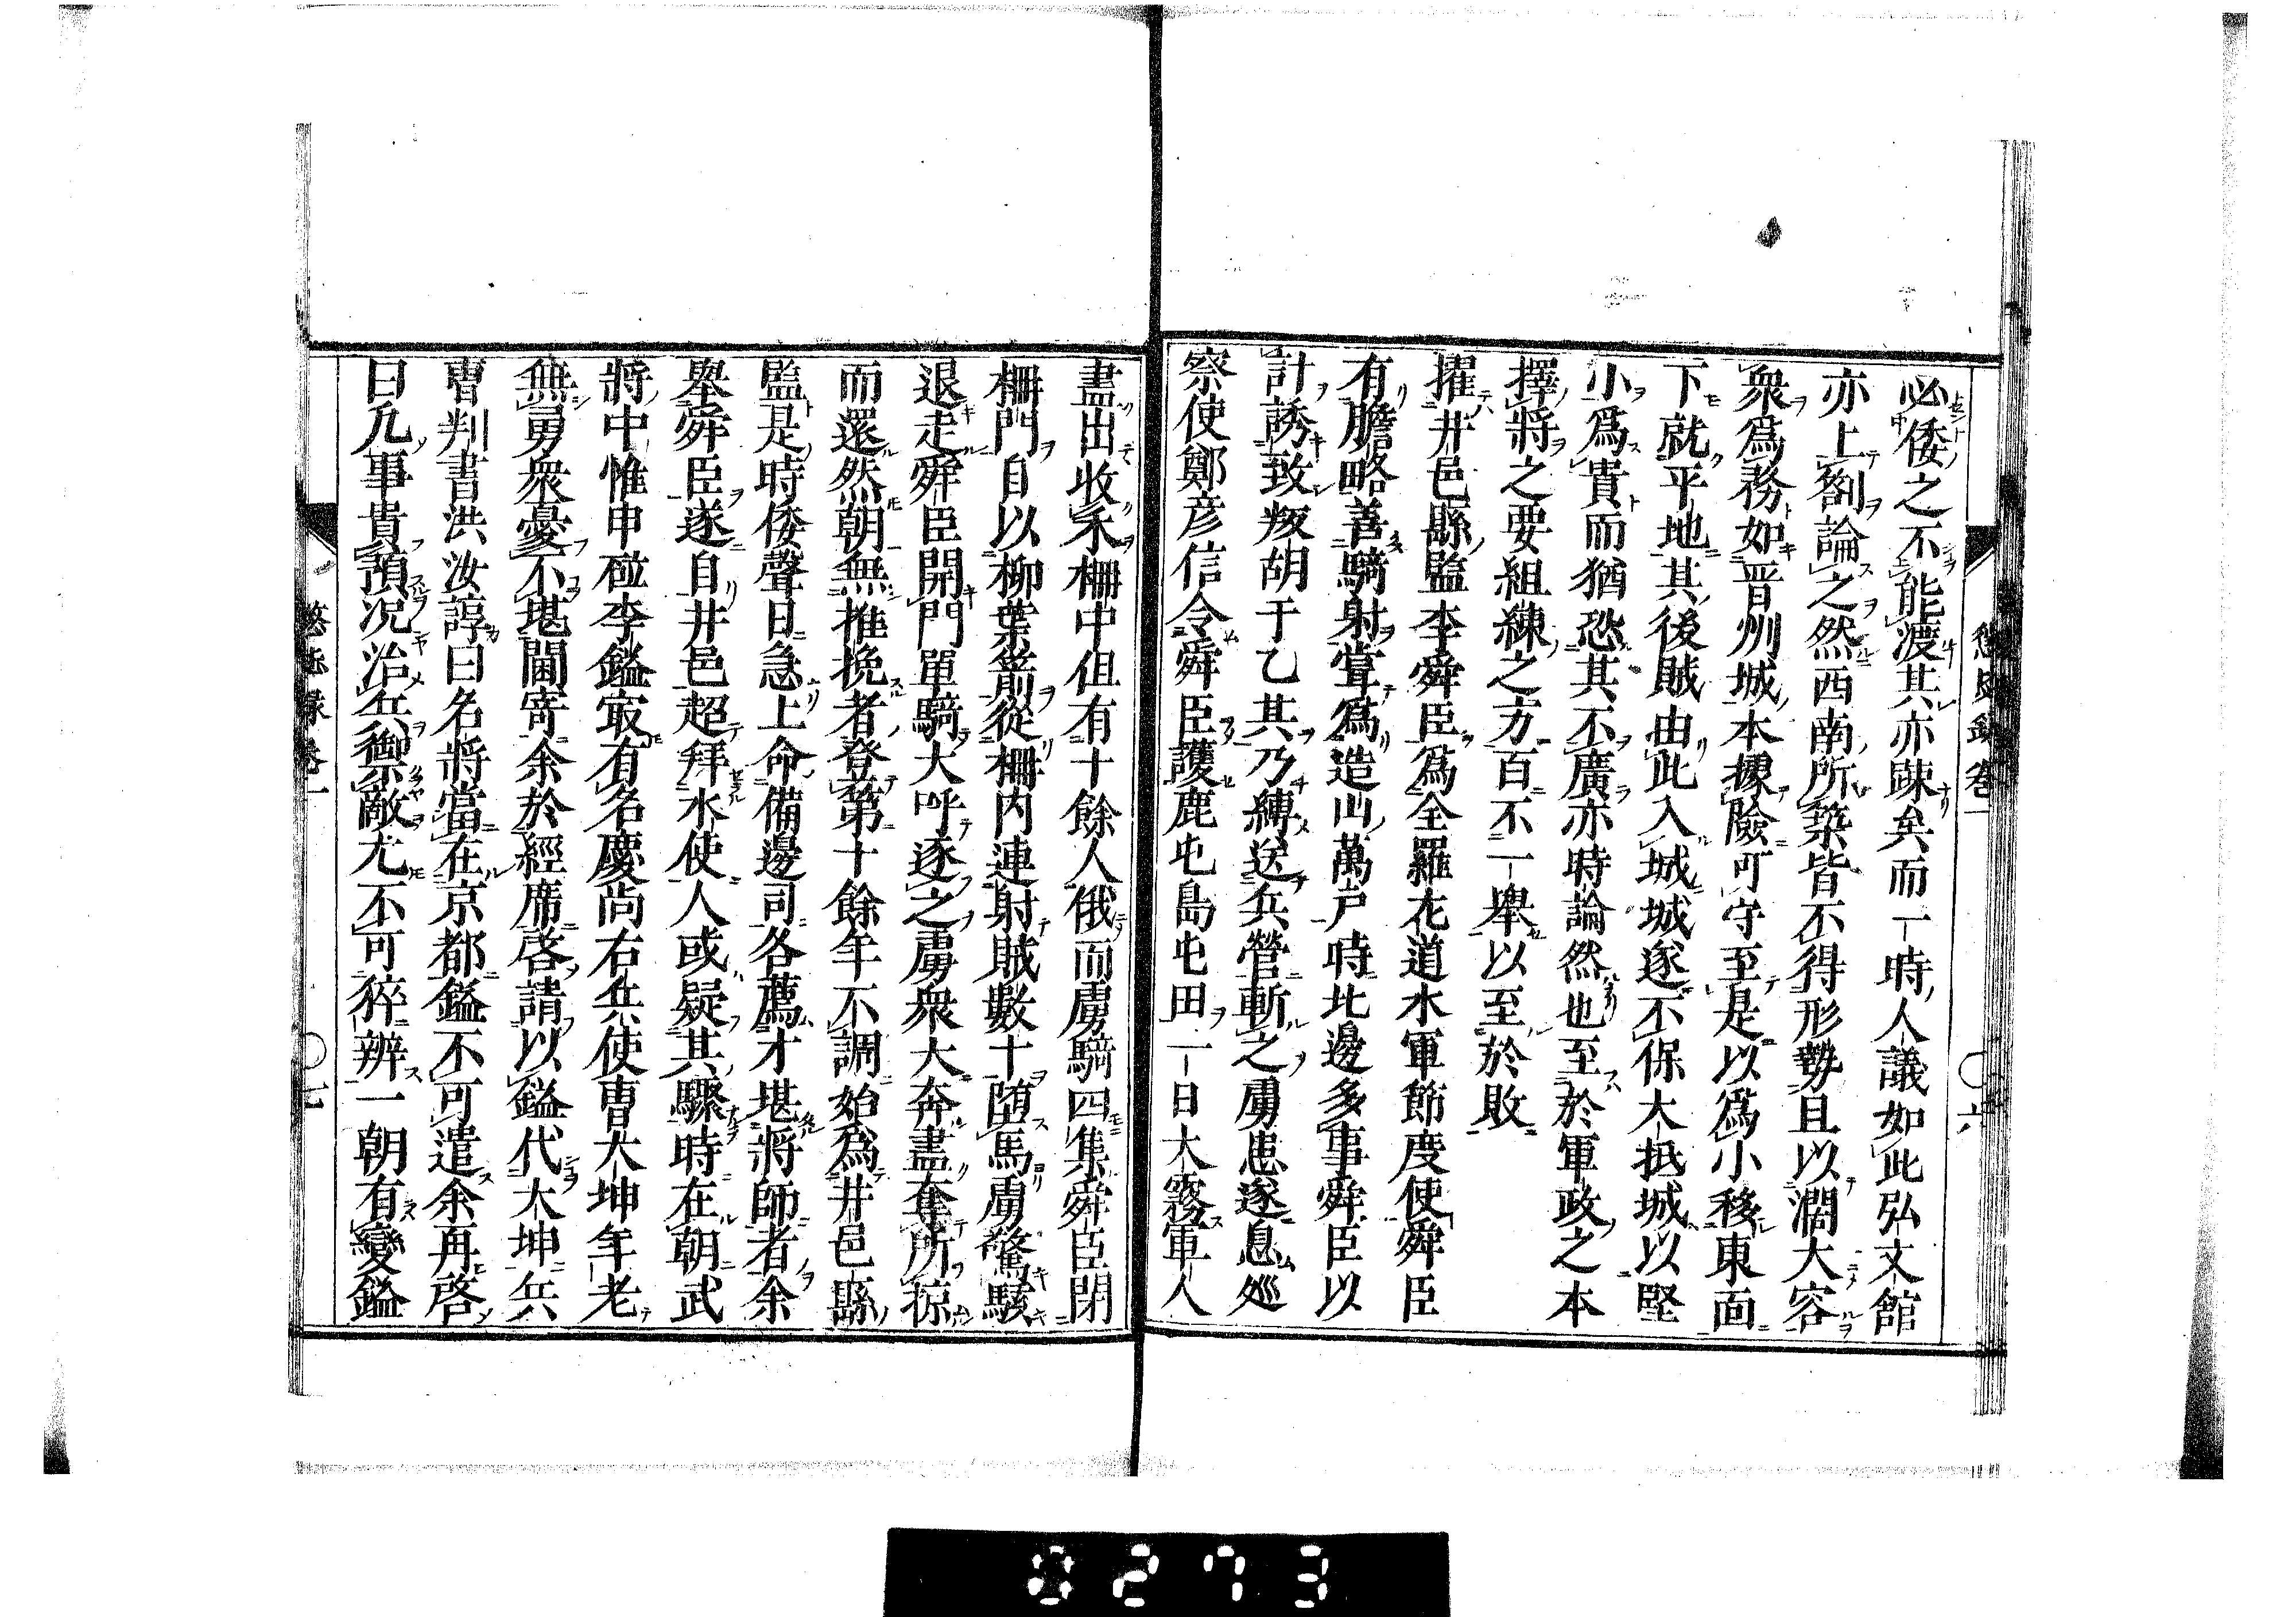 懲毖錄卷一　〇六
必倭之不能渡其亦疎矣而一時人議如此弘文館
亦上劄論之然西南所築皆不得形勢且以濶大容
衆爲務如晋州城本據險可守至是以爲小移東面
下就平地其後賊由此入城城遂不保大抵城以堅
小爲貴而猶恐其不廣亦時論然也至於軍政之本
擇將之要組練之方百不一擧以至於敗
擢井邑縣監李舜臣爲全羅左道水軍節度使舜臣
有膽略善騎射甞爲造山萬戸時北邊多事舜臣以
計誘致叛胡于乙其乃縛送兵營斬之虜患遂息巡
察使鄭彦信令舜臣護鹿屯島屯田一日大霧軍人
盡出收禾柵中但有十餘人俄而虜騎四集舜臣閉
柵門自以柳葉箭從柵内連射賊數十墮馬虜驚駭
退走舜臣開門單騎大呼逐之虜衆大奔盡奪所掠
而還然朝無推挽者登第十餘年不調始爲井邑縣
監是時倭聲日急上命備邊司各薦才堪將師者余
舉舜臣遂自井邑超拜水使人或疑其驟時在朝武
將中惟申砬李鎰㝡有名慶尚右兵使曹大坤年老
無勇衆憂不堪閫寄余於經席啓請以鎰代大坤兵
曹判書洪汝諄曰名將當在京都鎰不可遣余再啓
曰凡事貴預况治兵禦敵尤不可猝辨一朝有變鎰
懲毖錄卷一　〇七
0273